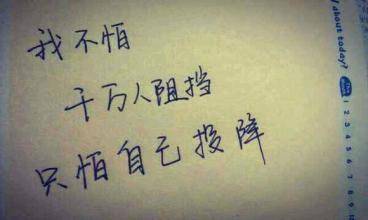 我不怕
千万人阻挡
只怕自己投降
about today?
1 2 3 4 5 6 7 8 9